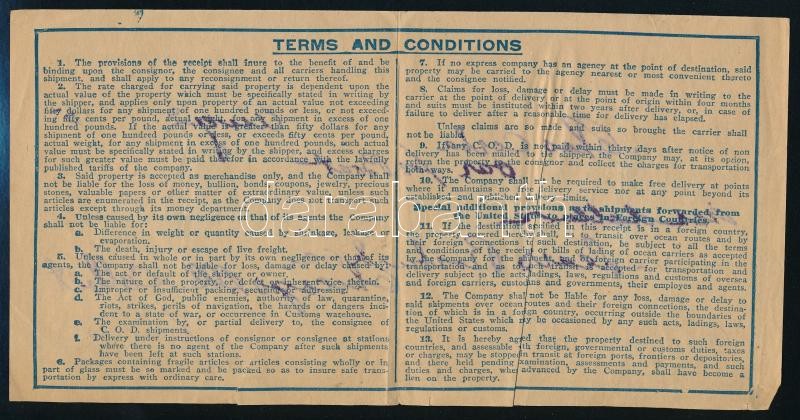 TERMS AND CONDITIONS
1. The provisions of the receipt shall inure to the benefit of and be
binding upon the consignor, the consignee and all carriers handling this
shipment, and shall apply to any reconsignment or return thereof.
2. The rate charged for carrying said property is dependent upon the
actual value of the property which must be specifically stated in writing by
the shipper, and applies only upon property of an actual value not exceeding
fifty dollars for any shipment of one hundred pounds or less, or not exceed-
ing fifty cents per pound, actual weight, for any shipment in excess of one
hundred pounds. If the actual value is more than fifty dollars for any
shipment of one hundred pounds or less, or exceeds fifty cents per pound,
actual weight, for any shipment in excess of one hundred pounds, such actual
value must be specifically stated in writing by the shipper, and excess charges
for such greater value must be paid therefor in accordance with the lawfully
published tariffs of the company.
3. Said property is accepted as merchandise only, and the Company shall
not be liable for the loss of money, bullion, bonds, coupons, jewelry, precious
stones, valuable papers or other matter of extraordinary value, unless such
articles are enumerated in the receipt, as the company does not transport such
goods except through its money department.
4. Unless caused by its own negligence or that of its agents the Company
shall not be liable for:
a. Difference in weight or quantity caused by shrinkage, leakage or
evaporation.
b. The death, injury or escape of live freight.
5. Unless caused in whole or in part by its own negligence or that of its
agents, the Company shall not be liable for loss, damage or delay caused by:
a. The act or default of the shipper or owner.
b. The nature of the property, or defect or inherent vice therein.
c. Improper or insufficient packing, securing or addressing.
d. The Act of God, public enemies, authority of law, quarantine,
riots, strikes, perils of navigation, the hazards or dangers inci-
dent to a state of war, or occurrence in Customs warehouse.
e. The examination by, or partial delivery to, the consignee of
C. O. D. shipments.
f. Delivery under instructions of consignor or consignee at stations
where there is no agent of the Company after such shipments
have been left at such stations.
6. Packages containing fragile articles or articles consisting wholly or in
part of glass must be so marked and be packed so as to insure safe trans-
portation by express with ordinary care.
7. If no express company has an agency at the point of destination, said
property may be carried to the agency nearest or most convenient thereto
and the consignee notified.
8. Claims for loss, damage or delay must be made in writing to the
carrier at the point of delivery or at the point of origin within four months
and suits must be instituted within two years after delivery, or, in case of
failure to deliver after a reasonable time for delivery has elapsed.
Unless claims are made and suits so brought the carrier shall
not be liable.
9. If any C. O. D. is not paid within thirty days after notice of non
delivery has been mailed to the shipper, the Company may, at its option,
return the property to the consignor and collect the charges for transportation
both ways.
10. The Company shall not be required to make free delivery at points
where it maintains no free delivery service nor at any point beyond its
established and published delivery limits.
Special additional provisions as to shipments forwarded from
the United States to places in Foreign Countries.
11. If the destination specified in this receipt is in a foreign country,
the property carried hereunder shall, as to transit over ocean routes and by
their foreign connections to such destination, be subject to all the terms
and conditions of the receipts or bills of lading of ocean carriers as accepted
by the Company for the shipment, and by foreign carrier participating in the
transportation, and such shipment is accepted for transportation and
delivery subject to the acts, ladings, laws, regulations and customs of oversea
and foreign carriers, customs and governments, their employes and agents.
12. The Company shall not be liable for any loss, damage or delay to
said shipments over ocean routes and their foreign connections, the destina-
tion of which is in a foreign country, occurring outside the boundaries of
the United States which may be occasioned by any such acts, ladings, laws,
regulations or customs.
13. It is hereby agreed that the property destined to such foreign
countries, and assessable with foreign, governmental or customs duties, taxes
or charges, may be stopped in transit at foreign ports, frontiers or depositories,
and there held pending examination, assessments and payments, and such
duties and charges, when advanced by the Company, shall have become a
lien on the property.
darabanth